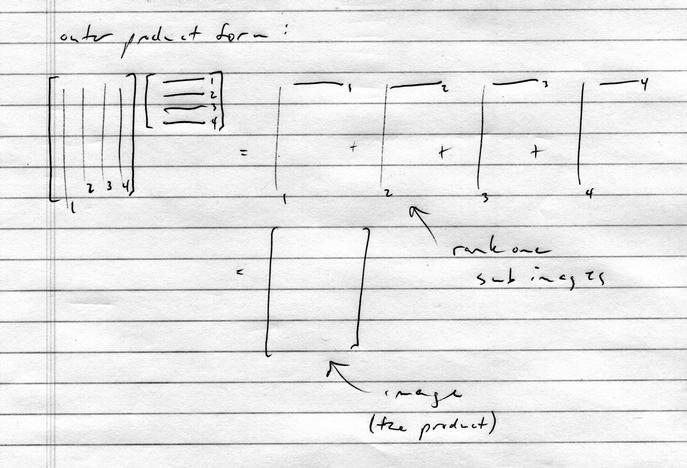 outer product form:
1 2 3 4 1 2 3 4 = 1 1 + 2 2 + 3 3 + 4 4
rank one
sub images
=
image
(the product)